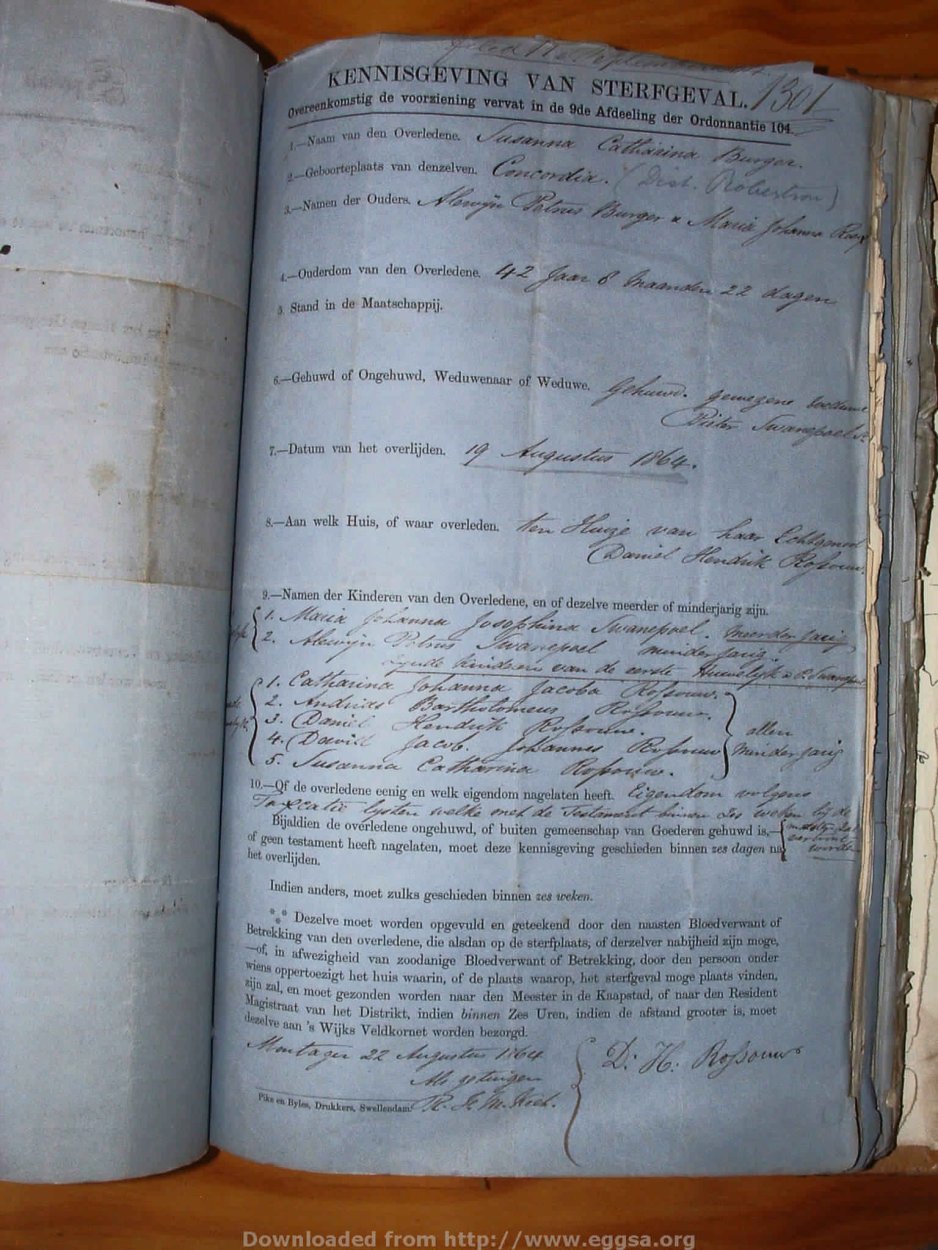 filed
KENNISGEVING VAN STERFGEVAL. 1301
Overeenkomstig de voorziening vervat in de 9de Afdeeling der Ordonnantie 104.
1.—Naam van den Overledene. Susanna Catharina Burger.
2.—Geboorteplaats van denzelven. Concordia. (Dist. Robertson)
3.—Namen der Ouders. Alewijn Petrus Burger & Maria Johanna
4.—Ouderdom van den Overledene. 42 Jaar 8 Maanden 22 dagen
5. Stand in de Maatschappij.
6.—Gehuwd of Ongehuwd, Weduwenaar of Weduwe. Gehuwd. gewezene weduwe
Pieter Swanepoel
7.—Datum van het overlijden. 19 Augustus 1864.
8.—Aan welk Huis, of waar overleden. ten Huize van haar Echtgenoot
Daniel Hendrik Rossouw.
9.—Namen der Kinderen van den Overledene, en of dezelve meerder of minderjarig zijn.
1. Maria Johanna Josophina Swanepoel. meerderjarig
2. Alewijn Petrus Swanepoel minderjarig.
zijnde kinderen van de eerste Huwelijk
1. Catharina Johanna Jacoba Rossouw.
2. Andries Bartholomeus Rossouw.
3. Daniel Hendrik Rossouw. allen
4. David Jacob. Johannes Rossouw minderjarig
5. Susanna Catharina Rossouw.
10.—Of de overledene eenig en welk eigendom nagelaten heeft. Eigendom volgens
Taxcatie lysten welke met de Testament binnen zes weken bij de
Bijaldien de overledene ongehuwd, of buiten gemeenschap van Goederen gehuwd is,—
of geen testament heeft nagelaten, moet deze kennisgeving geschieden binnen zes dagen na
het overlijden.
worde
Indien anders, moet zulks geschieden binnen zes weken.
*** Dezelve moet worden opgevuld en geteekend door den naasten Bloedverwant of
Betrekking van den overledene, die alsdan op de sterfplaats, of derzelver nabijheid zijn moge,
—of, in afwezigheid van zoodanige Bloedverwant of Betrekking, door den persoon onder
wiens oppertoezigt het huis waarin, of de plaats waarop, het sterfgeval moge plaats vinden,
zijn zal, en moet gezonden worden naar den Meester in de Kaapstad, of naar den Resident
Magistraat van het Distrikt, indien binnen Zes Uren, indien de afstand grooter is, moet
dezelve aan 's Wijks Veldkornet worden bezorgd.
Montagu 22 Augustus 1864 D. H. Rossouw
Als getuigen
Pike en Byles, Drukkers, Swellendam.
Downloaded from http://www.eggsa.org